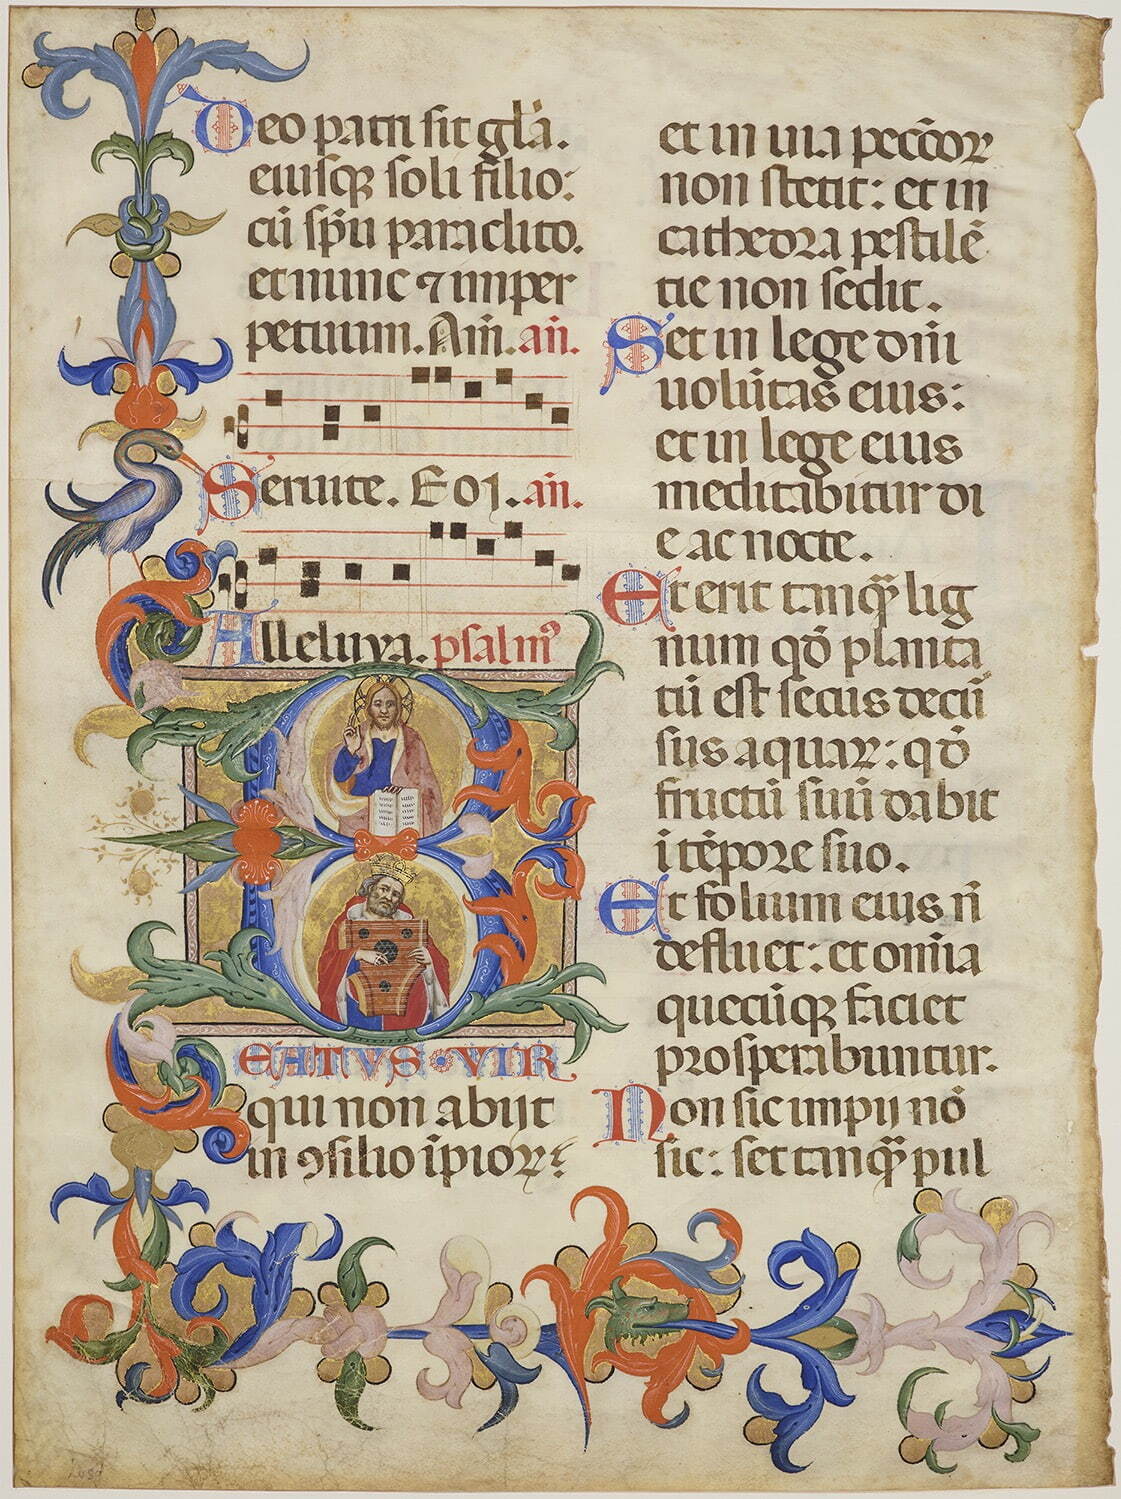 Deo patri sit gl̃a.
eiusqꝫ soli filio:
cũ sp̃u paraclito.
et nunc ⁊ imper
petuum. Am̃. añ.
Seruite. Eoɿ. añ.
Alleluya. psalmꝰ
BEATVS · VIR
qui non abijt
in ꝯsilio ĩpioꝝ:
et in uia peccõoꝝ
non stetit: et in
cathedra pestilẽ
tie non sedit.
Set in lege dñi
uolũtas eius:
et in lege eius
meditabitur di
e ac nocte.
Et erit tanqᷓ lig
num qð planta
tũ est secus decũ
sus aquaꝝ: qð
fructũ suũ dabit
ĩ tẽpore suo.
Et folium eius ñ
defluet: et omĩa
quecũqꝫ faciet
prosperabuntur.
Non sic impij nõ
sic: set tanqᷓ pul